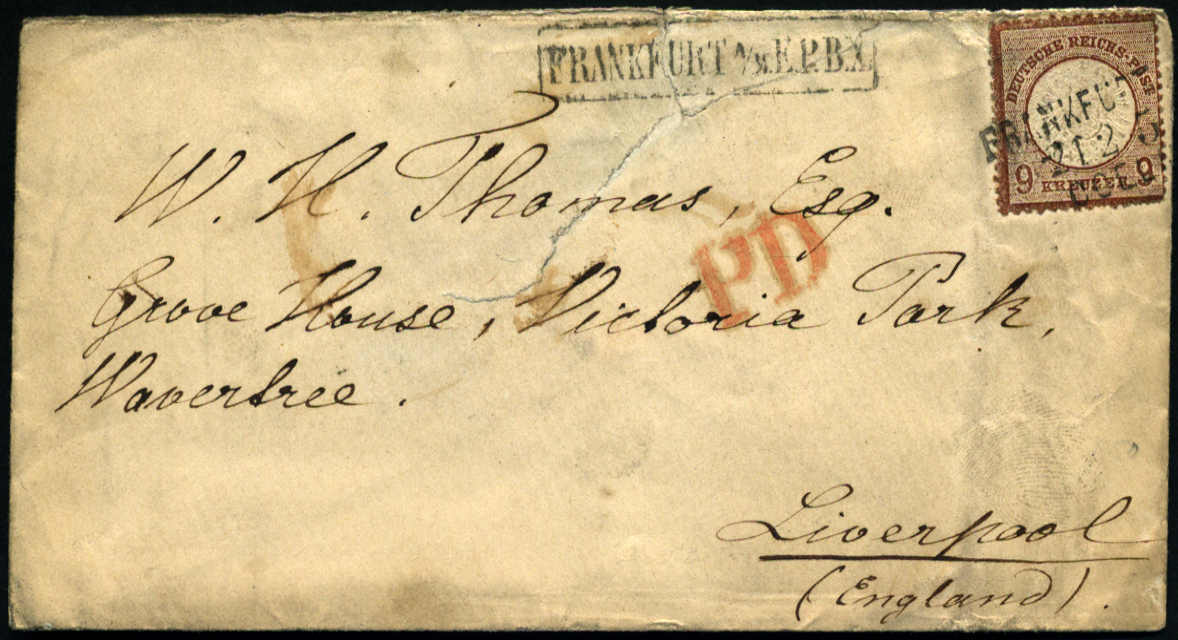 FRANKFURT A/M. E.P.B.X.
DEUTSCHE REICHS-POST
9 KREUZER 9
21 2
W. H. Thomas, Esq.
PD
Grove House, Victoria Park,
Wavertree.
Liverpool
(England).